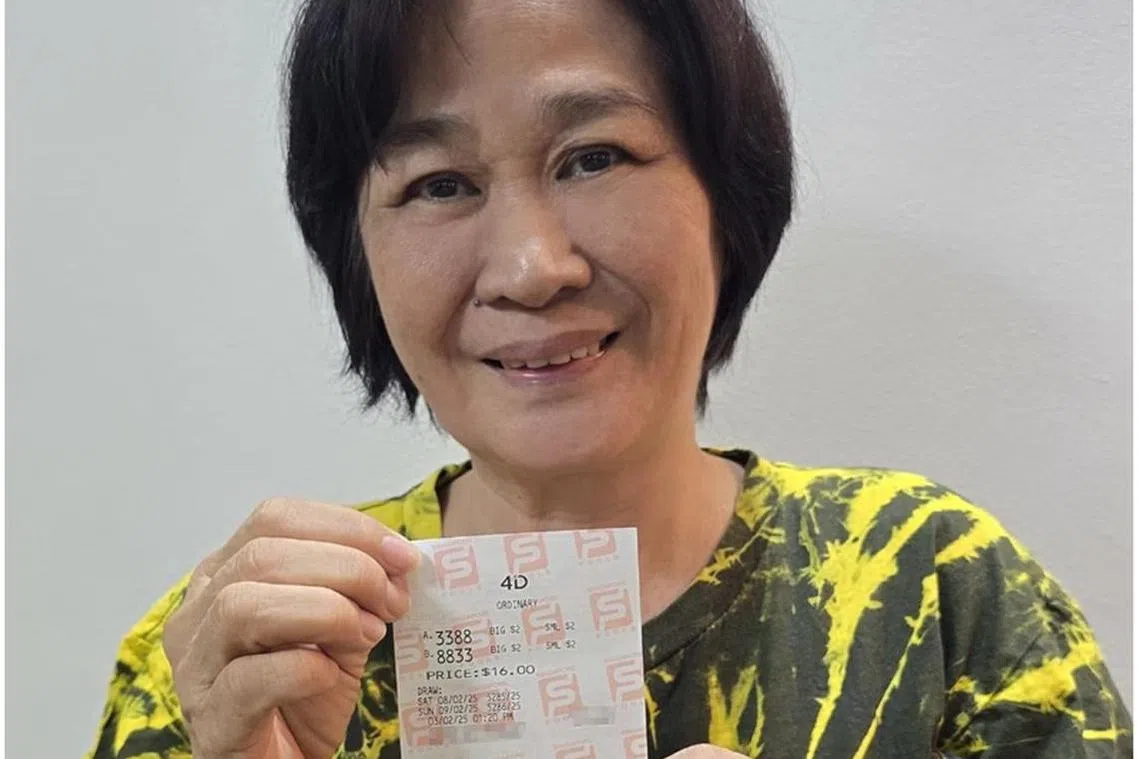 4D
ORDINARY
A. 3388 BIG $2 SML $2
B. 8833 BIG $2 SML $2
PRICE:$16.00
DRAW:
SAT 08/02/25 5285/25
SUN 09/02/25 5286/25
03/02/25 01:20 PM